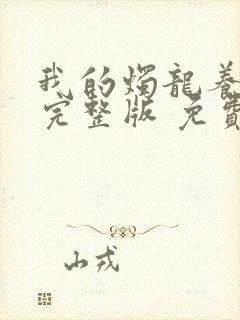 我的燭龍養
完整版 免費
山戎